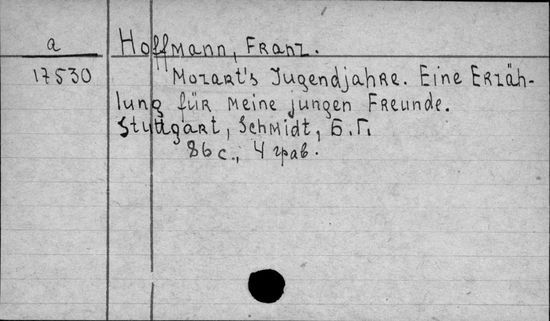 a
Hoffmann, Franz.
17530
Mozart's Jugendjahre. Eine Erzäh-
lung für meine jungen Freunde.
Stuttgart, Schmidt, б.г.
86 с., 4 грав.